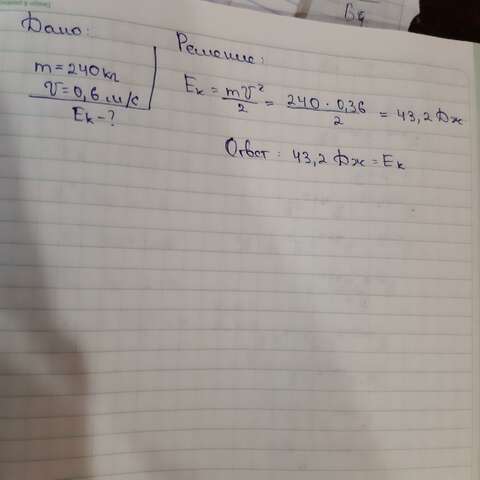 Дано:
m = 240 кг
V = 0,6 м/с
Eк - ?
Решение:
Eк = mV²/2 = 240 · 0,36/2 = 43,2 Дж
Ответ: 43,2 Дж = Eк